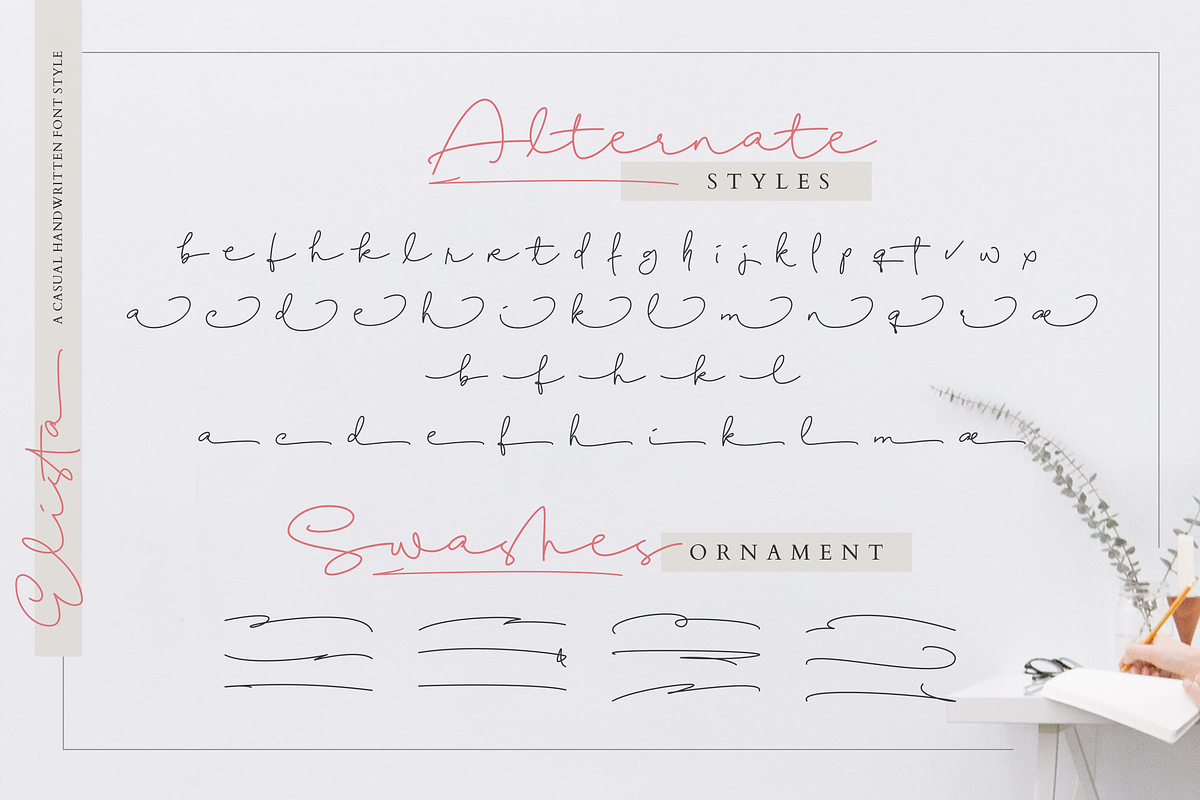 A CASUAL HANDWRITTEN FONT STYLE
Elista
Alternate
STYLES
b e f h k l r r t d f g h i j k l p q t v w x
a c d e h i k l m n q r æ
b f h k l
a c d e f h i k l m æ
Swashes
ORNAMENT